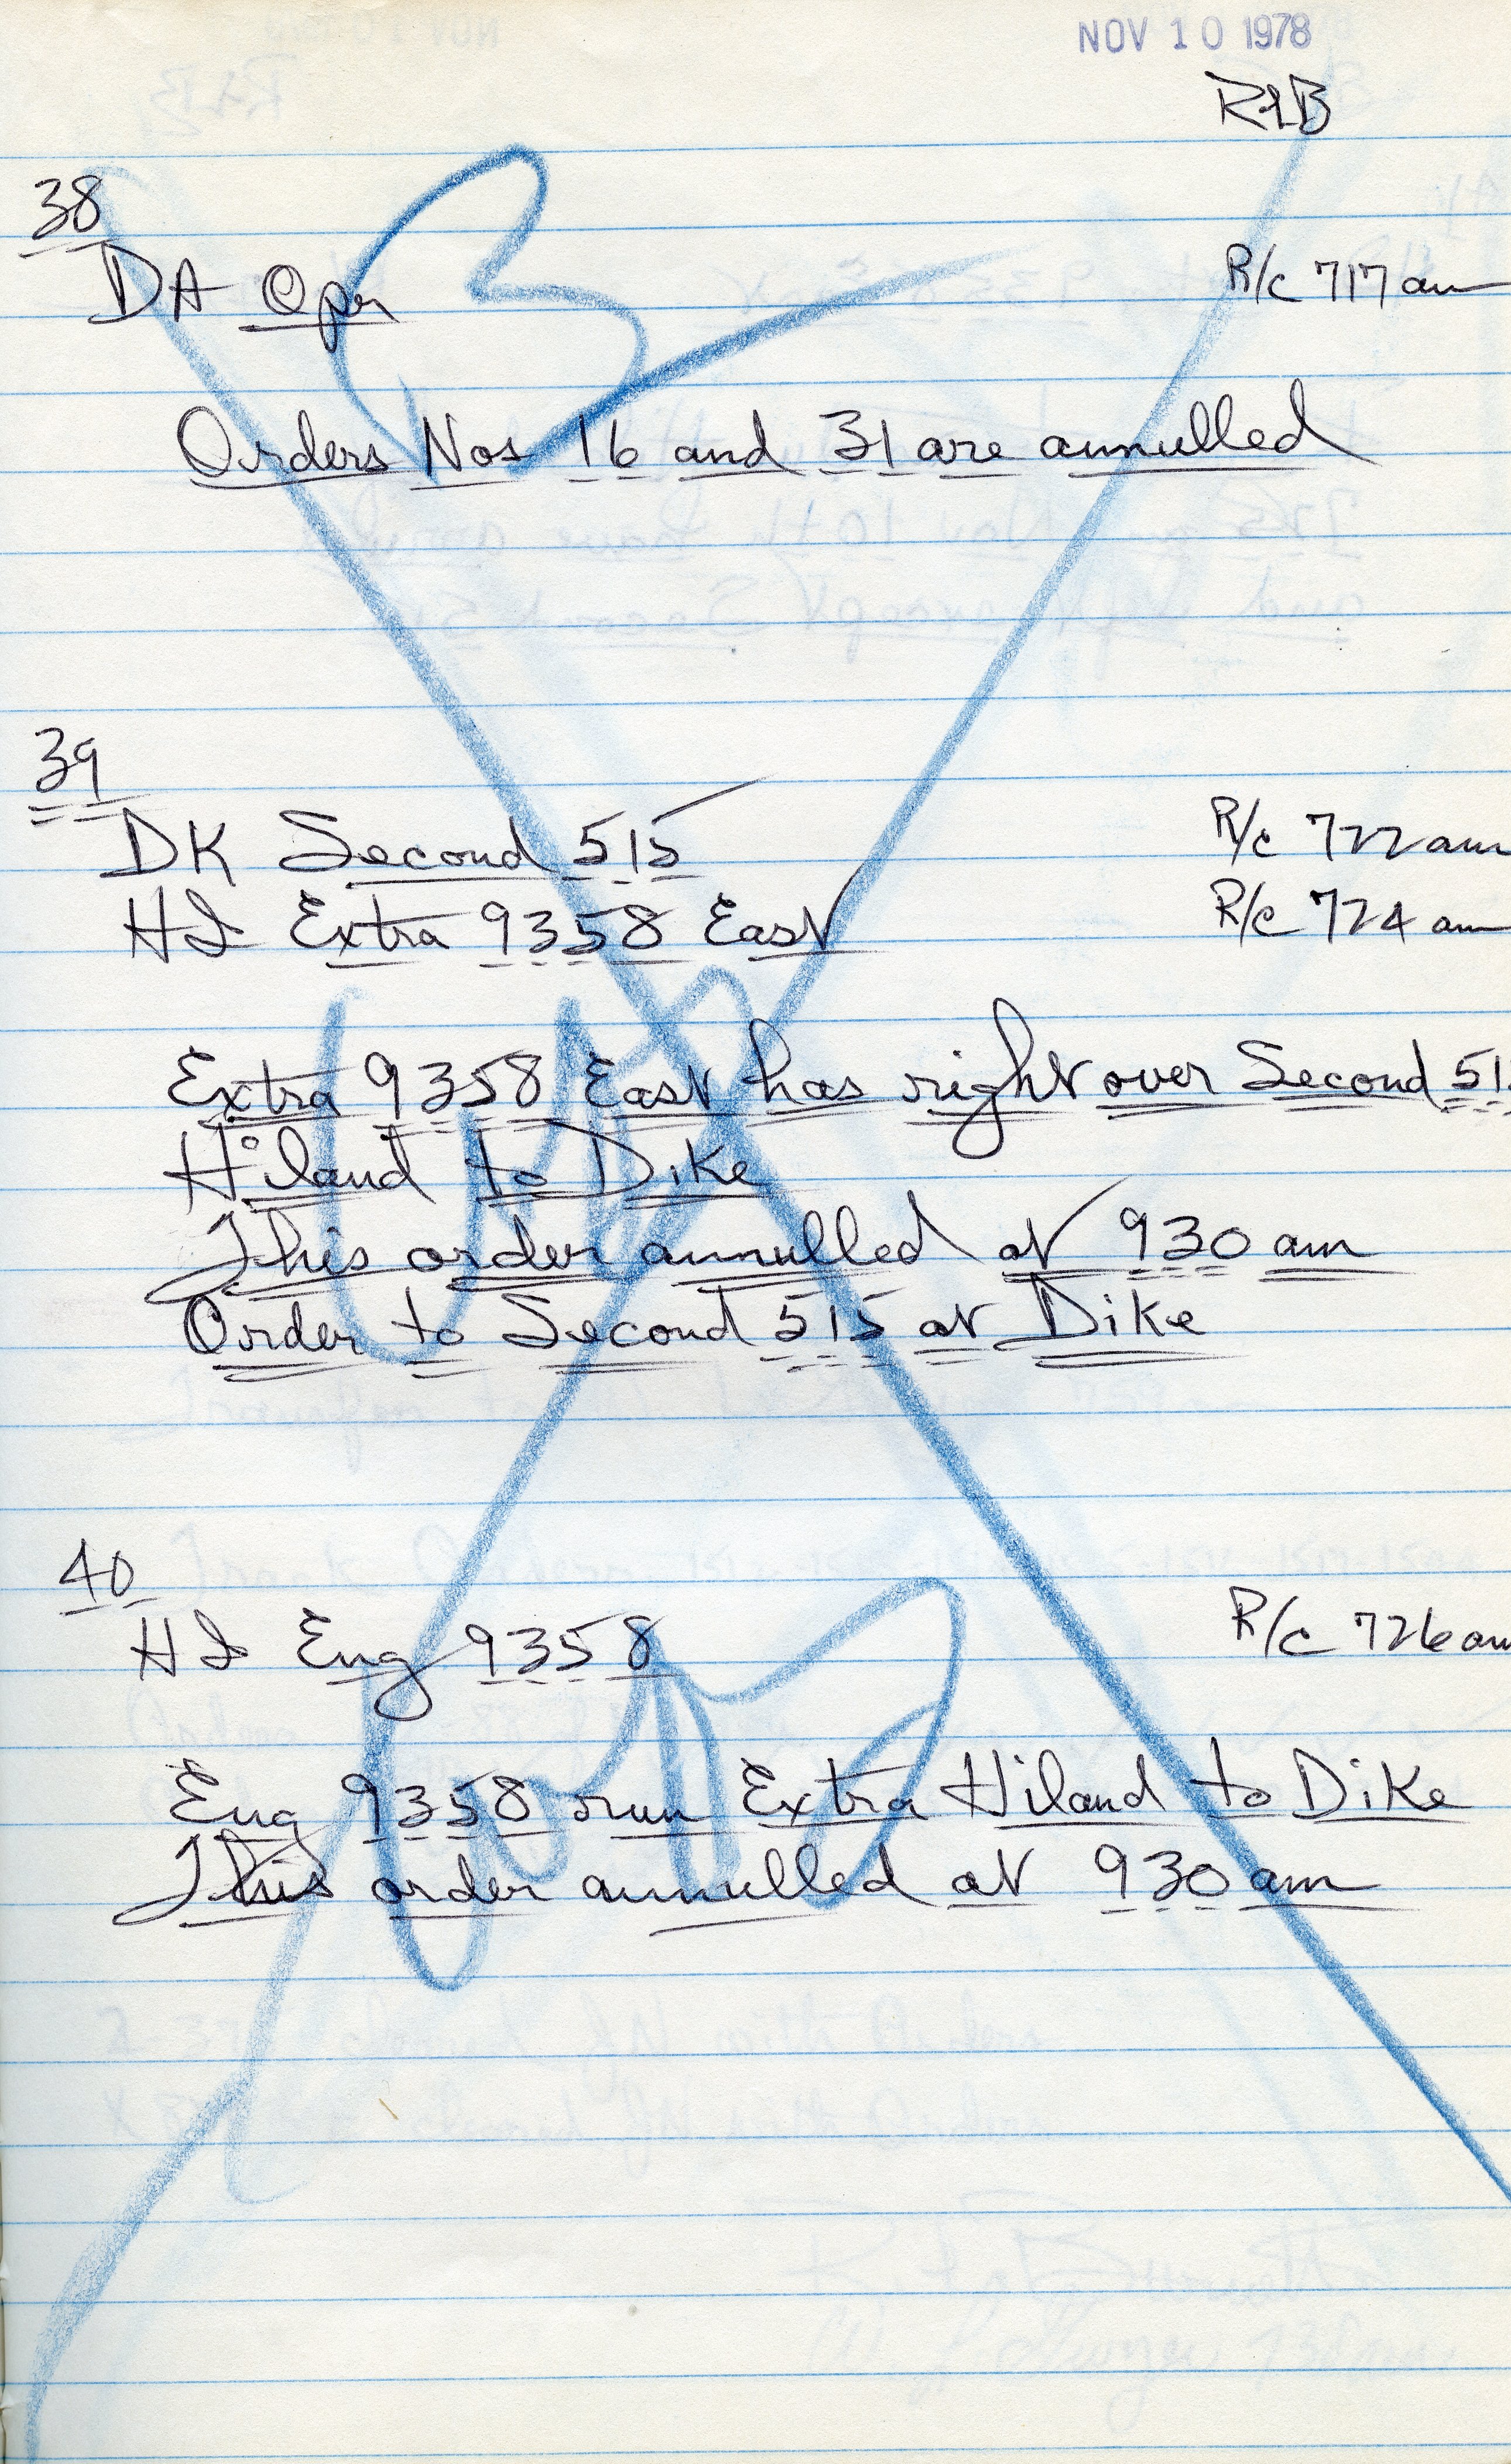 NOV 10 1978
RLB
38
DA Oper R/c 717 am
Orders Nos 16 and 31 are annulled
39
DK Second 515 R/c 722 am
HI Extra 9358 East R/c 724 am
Extra 9358 East has right over Second 51
Hiland to Dike
This order annulled at 930 am
Order to Second 515 at Dike
40
HI Eng 9358 R/c 726 am
Eng 9358 run Extra Hiland to Dike
This order annulled at 930 am